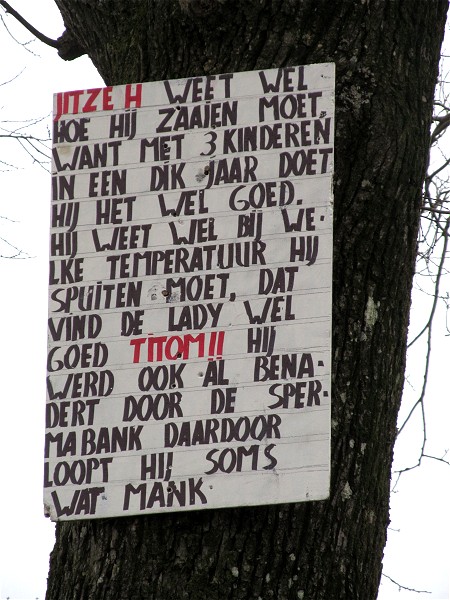 JITZE H WEET WEL
HOE HIJ ZAAIEN MOET,
WANT MET 3 KINDEREN
IN EEN DIK JAAR DOET
HIJ HET WEL GOED.
HIJ WEET WEL BIJ WE-
LKE TEMPERATUUR HIJ
SPUITEN MOET, DAT
VIND DE LADY WEL
GOED TITOM!! HIJ
WERD OOK AL BENA-
DERT DOOR DE SPER-
MABANK DAARDOOR
LOOPT HIJ SOMS
WAT MANK